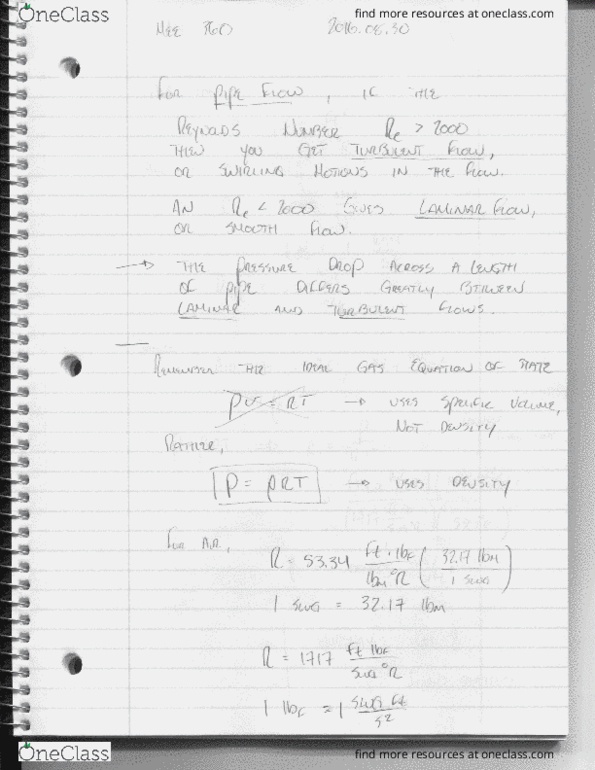 OneClass
find more resources at oneclass.com
MEE 360 2016.08.30
FOR PIPE FLOW, IF THE
REYNOLDS NUMBER Re > 2000
THEN YOU GET TURBULENT FLOW,
OR SWIRLING MOTIONS IN THE FLOW.
AN Re < 2000 GIVES LAMINAR FLOW,
OR SMOOTH FLOW.
→ THE PRESSURE DROP ACROSS A LENGTH
OF PIPE DIFFERS GREATLY BETWEEN
LAMINAR AND TURBULENT FLOWS.
REMEMBER THE IDEAL GAS EQUATION OF STATE
pv = RT → USES SPECIFIC VOLUME,
NOT DENSITY
RATHER,
P = ρRT → USES DENSITY
FOR AIR,
R = 53.34 ft·lbf / lbm °R (32.17 lbm / 1 slug)
1 slug = 32.17 lbm
R = 1717 ft lbf / slug °R
1 lbf = 1 slug ft / s²
OneClass
find more resources at oneclass.com